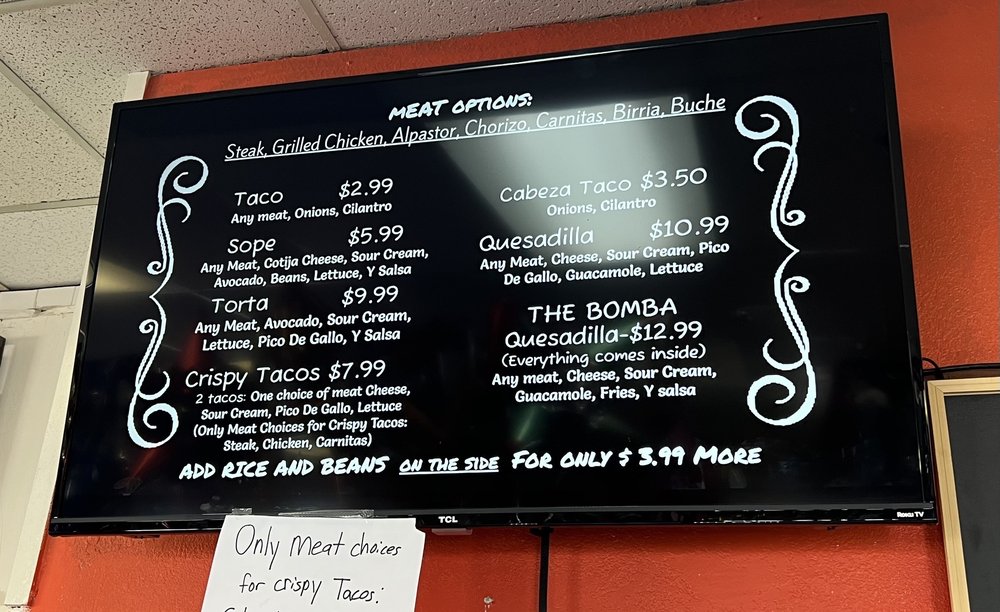 MEAT OPTIONS:
Steak, Grilled Chicken, Alpastor, Chorizo, Carnitas, Birria, Buche
Taco $2.99
Any meat, Onions, Cilantro
Sope $5.99
Any Meat, Cotija Cheese, Sour Cream,
Avocado, Beans, Lettuce, Y Salsa
Torta $9.99
Any Meat, Avocado, Sour Cream,
Lettuce, Pico De Gallo, Y Salsa
Crispy Tacos $7.99
2 tacos: One choice of meat Cheese,
Sour Cream, Pico De Gallo, Lettuce
(Only Meat Choices for Crispy Tacos:
Steak, Chicken, Carnitas)
Cabeza Taco $3.50
Onions, Cilantro
Quesadilla $10.99
Any Meat, Cheese, Sour Cream, Pico
De Gallo, Guacamole, Lettuce
THE BOMBA
Quesadilla-$12.99
(Everything comes inside)
Any meat, Cheese, Sour Cream,
Guacamole, Fries, Y salsa
ADD RICE AND BEANS ON THE SIDE FOR ONLY $ 3.99 MORE
TCL
Roku TV
Only Meat choices
for crispy Tacos: